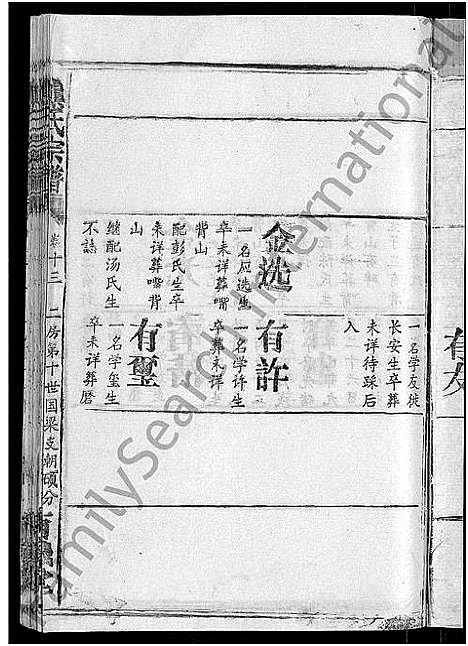 有友
一名学友徙
长安生卒葬
未详待踩后
入
金选
一名应选生
卒未详葬嘴
背山
配彭氏生卒
未详葬嘴背
山
继配汤氏生
不誌
有許
一名学许生
卒葬未详
有璽
一名学玺生
卒未详葬磨
氏宗譜
卷十三
二房第十世国梁支朝硕分
FamilySearch International